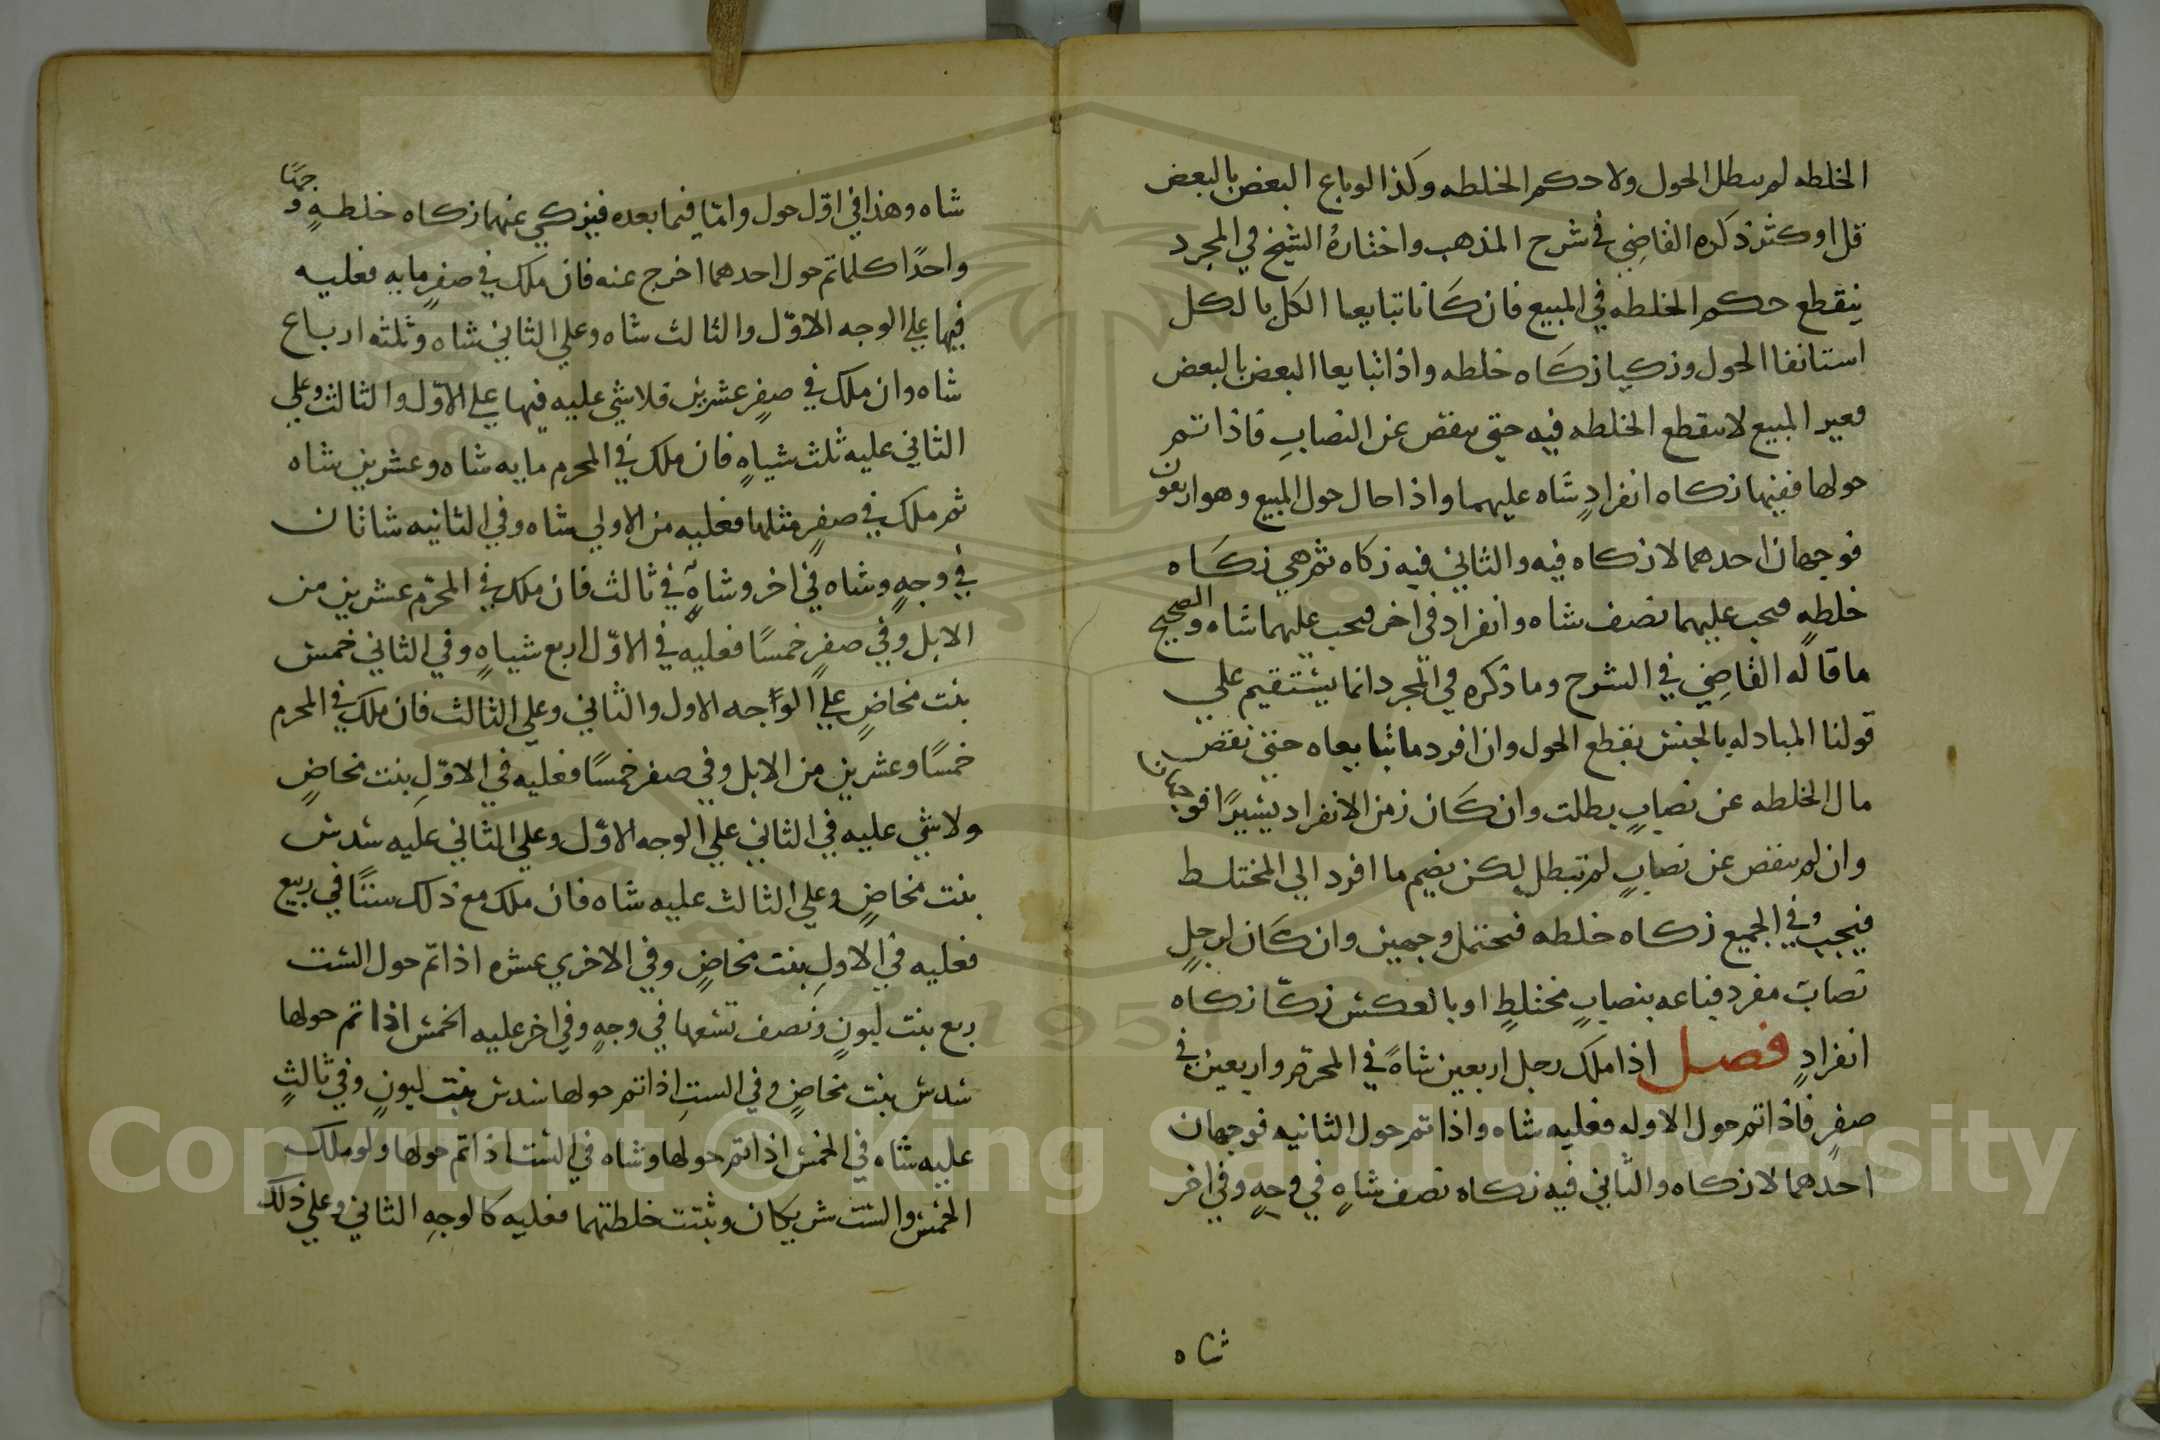 الخلطه لم يبطل الحول ولا حكم الخلطه وكذا لو باع البعض بالبعض
قل او كثر ذكره القاضي في شرح المذهب واختاره الشيخ في المجرد
ينقطع حكم الخلطه في المبيع فان كانا تبايعا الكل بالكل
استانفا الحول وزكيا زكاه خلطه واذا تبايعا البعض بالبعض
فغير المبيع لا ينقطع الخلطه فيه حتى ينقص عن النصابِ فاذا تم
حولها ففيها زكاه انفرادٍ شاه عليهما واذا حال حول المبيع وهو اربعون
فوجهان احدهما لا زكاه فيه والثاني فيه زكاه ثم هي زكاه
خلطهٍ فيجب عليهما نصف شاه وانفراد في اخر فيجب عليهما شاه والصحيح
ما قاله القاضِي في الشرح وما ذكره في المجرد انما يستقيم علي
قولنا المبادله بالجنس يقطع الحول وان افرد ما تبايعاه حتى نقض
مال الخلطه عن نصابٍ بطلت وان كان زمن الانفراد يسيرًا فوجهان
وان لم ينقص عن نصابٍ لم تبطل لكن يضم ما افرد الي المختلط
فيجب في الجميع زكاه خلطه فيحتمل وجهين وان كان لرجلٍ
نصاب مفرد فباعه بنصابٍ مختلطٍ او بالعكس زكّا زكاه
انفرادٍ فصل اذا ملك رجل اربعين شاةً في المحرم واربعين في
صفرٍ فاذا تم حول الاوله فعليه شاه واذا تم حول الثانيه فوجهان
احدهما لا زكاه والثاني فيه زكاه نصف شاهٍ في وجهٍ وفي اخر
شاه
شاه وهذا في اوّل حول وامّا فيما بعده فيزكي عنهما زكاه خلطهٍ وجهًا
واحدًا كلما تم حول احدهما اخرج عنه فان ملك في صفرٍ مايه فعليه
فيها علي الوجه الاوّل والثالث شاه وعلي الثاني شاه وثلثه ارباع
شاه وان ملك في صفرٍ عشرين فلا شي عليه فيها علي الاوّل والثالث وعلي
الثاني عليه ثلث شياهٍ فان ملك في المحرم مايه شاه وعشرين شاه
ثم ملك في صفرٍ مثلها فعليه من الاولي شاه وفي الثانيه شاتان
في وجهٍ وشاه في اخر وشاهٍ في ثالث فان ملك في المحرّم عشرين من
الابل وفي صفرٍ خمسًا فعليه في الاوّل اربع شياهٍ وفي الثاني خمس
بنت مخاضٍ علي الواجه الاول والثاني وعلي الثالث فان ملك في المحرم
خمسًا وعشرين من الابل وفي صفر خمسًا فعليه في الاوّلِ بنت مخاضٍ
ولا شي عليه في الثاني علي الوجه الاوّل وعلي الثاني عليه سدس
بنت مخاضٍ وعلي الثالث عليه شاه فان ملك مع ذلك ستًا في ربيع
فعليه في الاولِ بنت مخاضٍ وفي الاخري عشره اذا تم حول الست
ربع بنت لبونٍ ونصف تسعها في وجهٍ وفي اخر عليه الخمس اذا تم حولها
سدس بنت مخاضٍ وفي الستِ اذا تم حولها سدس بنت لبونٍ وفي ثالثٍ
عليه شاه في الخمس اذا تم حولها وشاه في الست اذا تم حولها ولو ملك
الخمس والست شريكان وثبتت خلطتهما فعليه كالوجهِ الثاني وعلي ذلك
Copyright © King Saud University
1957